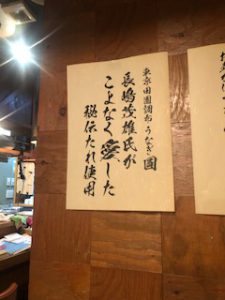 東京田園調布 うなぎ 圓
長嶋茂雄氏が
こよなく愛した
秘伝たれ使用